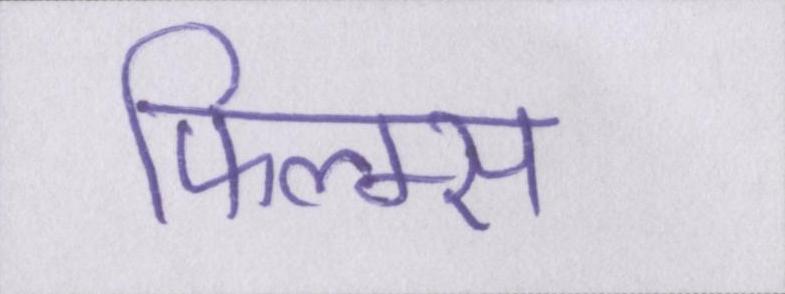 फिल्म्स